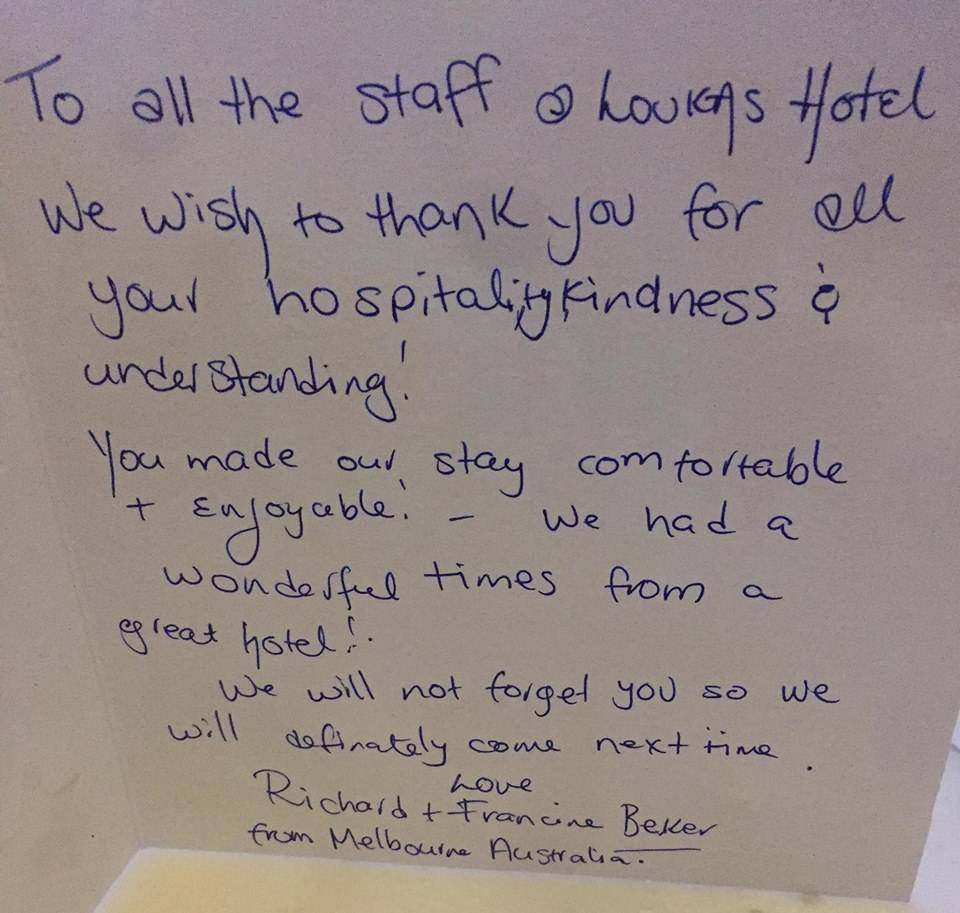 To all the staff @ Loukas Hotel
We wish to thank you for all
your hospitality, kindness &
understanding!
You made our stay comfortable
+ Enjoyable! - We had a
wonderful times from a
great hotel!.
We will not forget you so we
will definately come next time.
Love
Richard + Francine Beker
from Melbourne Australia.